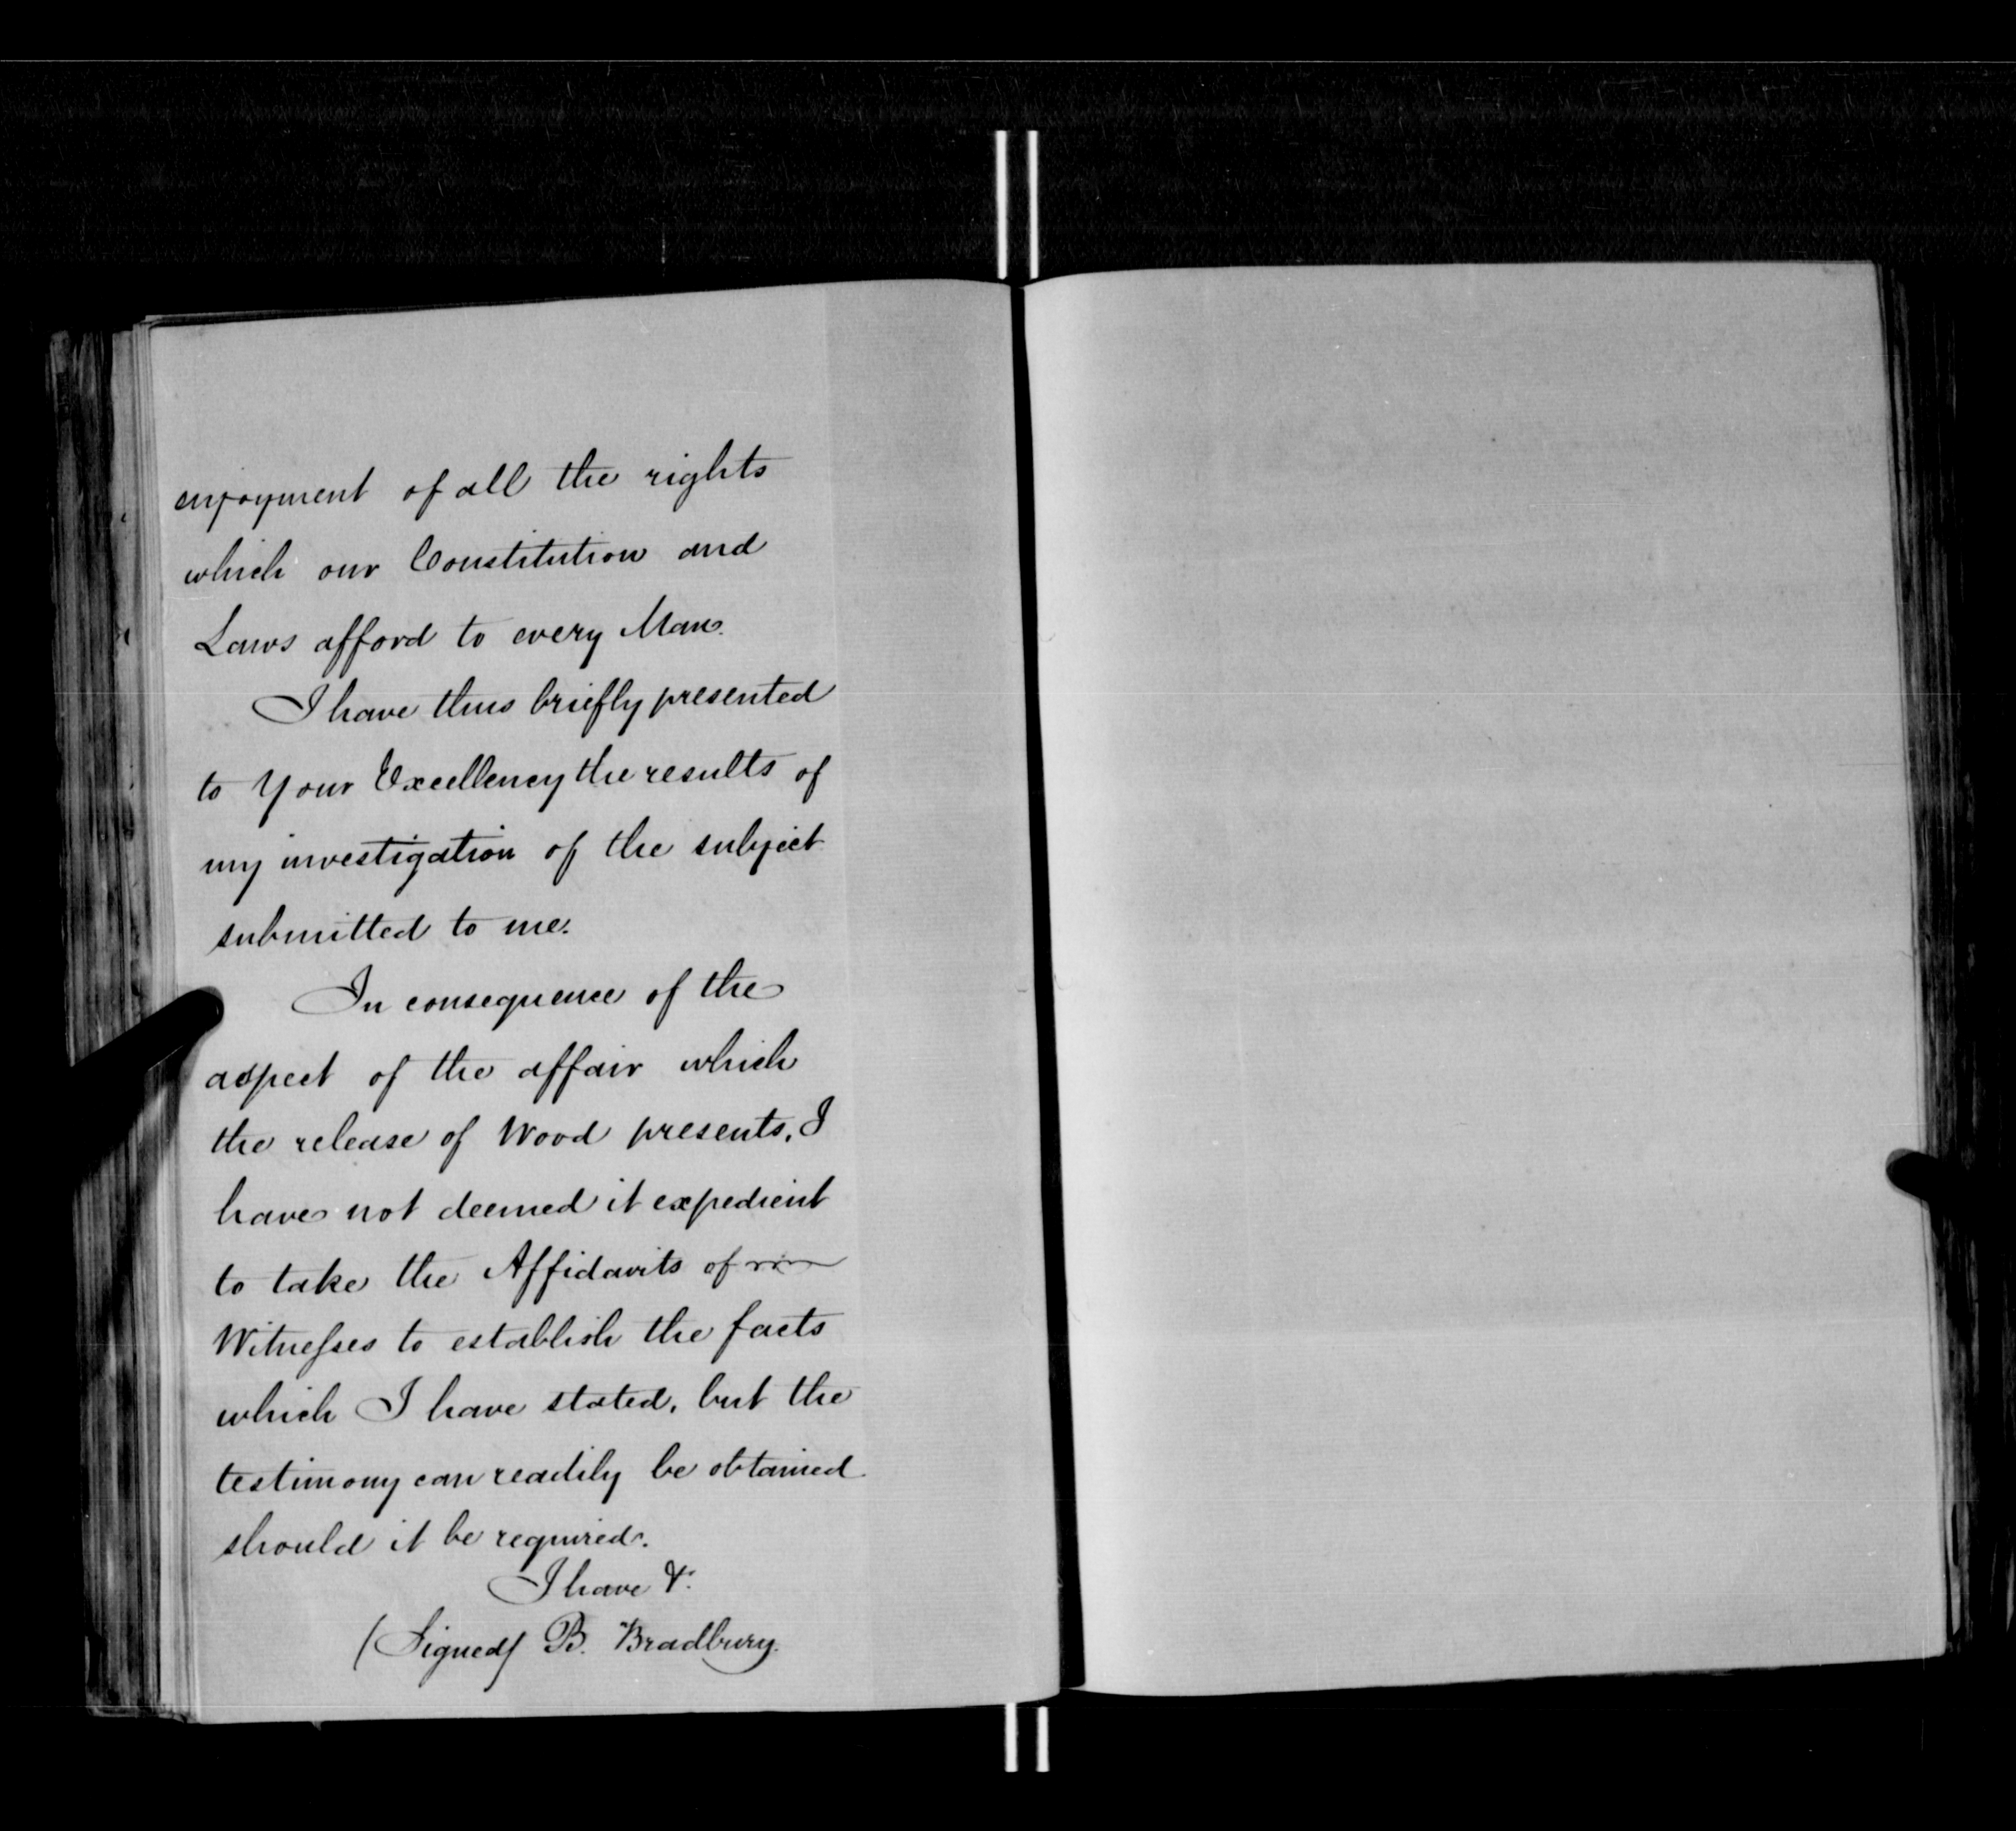 enjoyment of all the rights
which our Constitution and
Laws afford to every Man.
I have thus briefly presented
to Your Excellency the results of
my investigation of the subject
submitted to me.
In consequence of the
aspect of the affair which
the release of Wood presents, I
have not deemed it expedient
to take the Affidavits of
Witnesses to establish the facts
which I have stated, but the
testimony can readily be obtained
should it be required.
I have &.
(Signed) B. Bradbury.